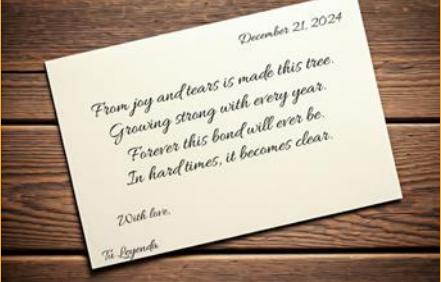 December 21, 2024
From joy and tears is made this tree.
Growing strong with every year.
Forever this bond will ever be.
In hard times, it becomes clear.
With love,
Tu Leyenda